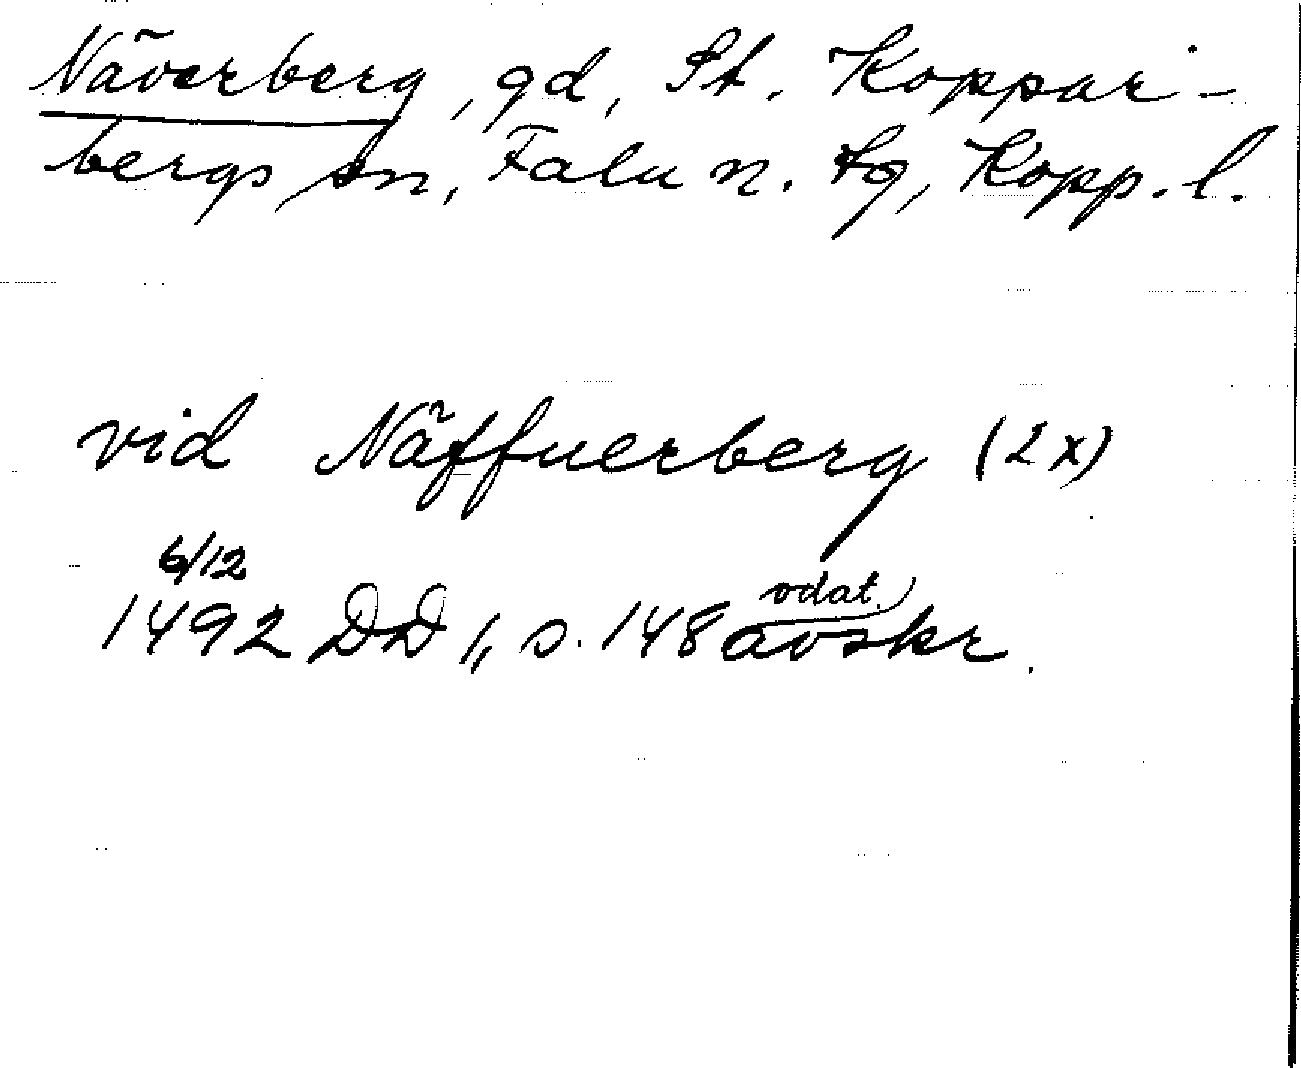 Näverberg, gd, St. Koppar-
bergs sn, Falu n. tg, Kopp. l.
vid Näffuerberg (2x)
6/12
1492 DD 1,, s. 148 avskr.
odat.